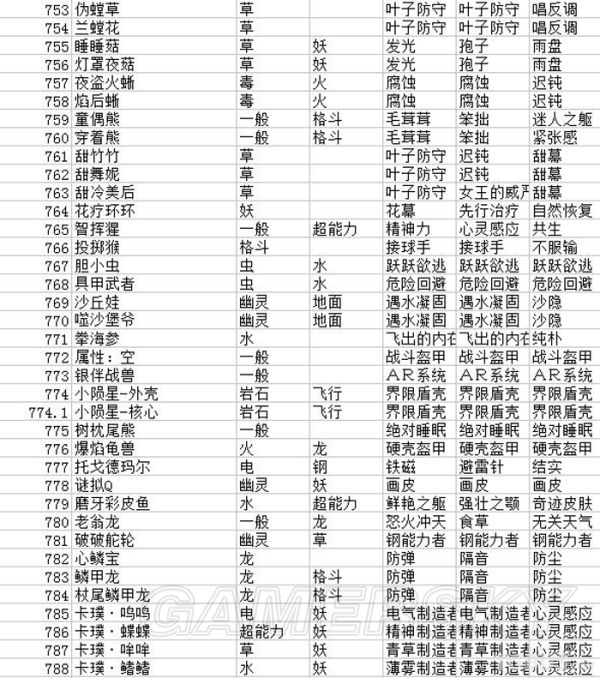 753 伪螳草 草 叶子防守 叶子防守 唱反调
754 兰螳花 草 叶子防守 叶子防守 唱反调
755 睡睡菇 草 妖 发光 孢子 雨盘
756 灯罩夜菇 草 妖 发光 孢子 雨盘
757 夜盗火蜥 毒 火 腐蚀 腐蚀 迟钝
758 焰后蜥 毒 火 腐蚀 腐蚀 迟钝
759 童偶熊 一般 格斗 毛茸茸 笨拙 迷人之躯
760 穿着熊 一般 格斗 毛茸茸 笨拙 紧张感
761 甜竹竹 草 叶子防守 迟钝 甜幕
762 甜舞妮 草 叶子防守 迟钝 甜幕
763 甜冷美后 草 叶子防守 女王的威严 甜幕
764 花疗环环 妖 花幕 先行治疗 自然恢复
765 智挥猩 一般 超能力 精神力 心灵感应 共生
766 投掷猴 格斗 接球手 接球手 不服输
767 胆小虫 虫 水 跃跃欲逃 跃跃欲逃 跃跃欲逃
768 具甲武者 虫 水 危险回避 危险回避 危险回避
769 沙丘娃 幽灵 地面 遇水凝固 遇水凝固 沙隐
770 噬沙堡爷 幽灵 地面 遇水凝固 遇水凝固 沙隐
771 拳海参 水 飞出的内在 飞出的内在 纯朴
772 属性：空 一般 战斗盔甲 战斗盔甲 战斗盔甲
773 银伴战兽 一般 AR系统 AR系统 AR系统
774 小陨星-外壳 岩石 飞行 界限盾壳 界限盾壳 界限盾壳
774.1 小陨星-核心 岩石 飞行 界限盾壳 界限盾壳 界限盾壳
775 树枕尾熊 一般 绝对睡眠 绝对睡眠 绝对睡眠
776 爆焰龟兽 火 龙 硬壳盔甲 硬壳盔甲 硬壳盔甲
777 托戈德玛尔 电 钢 铁磁 避雷针 结实
778 谜拟Q 幽灵 妖 画皮 画皮 画皮
779 磨牙彩皮鱼 水 超能力 鲜艳之躯 强壮之颚 奇迹皮肤
780 老翁龙 一般 龙 怒火冲天 食草 无关天气
781 破破舵轮 幽灵 草 钢能力者 钢能力者 钢能力者
782 心鳞宝 龙 防弹 隔音 防尘
783 鳞甲龙 龙 格斗 防弹 隔音 防尘
784 杖尾鳞甲龙 龙 格斗 防弹 隔音 防尘
785 卡璞·鸣鸣 电 妖 电气制造者 电气制造者 心灵感应
786 卡璞·蝶蝶 超能力 妖 精神制造者 精神制造者 心灵感应
787 卡璞·哞哞 草 妖 青草制造者 青草制造者 心灵感应
788 卡璞·鳍鳍 水 妖 薄雾制造者 薄雾制造者 心灵感应
GAMERSKY